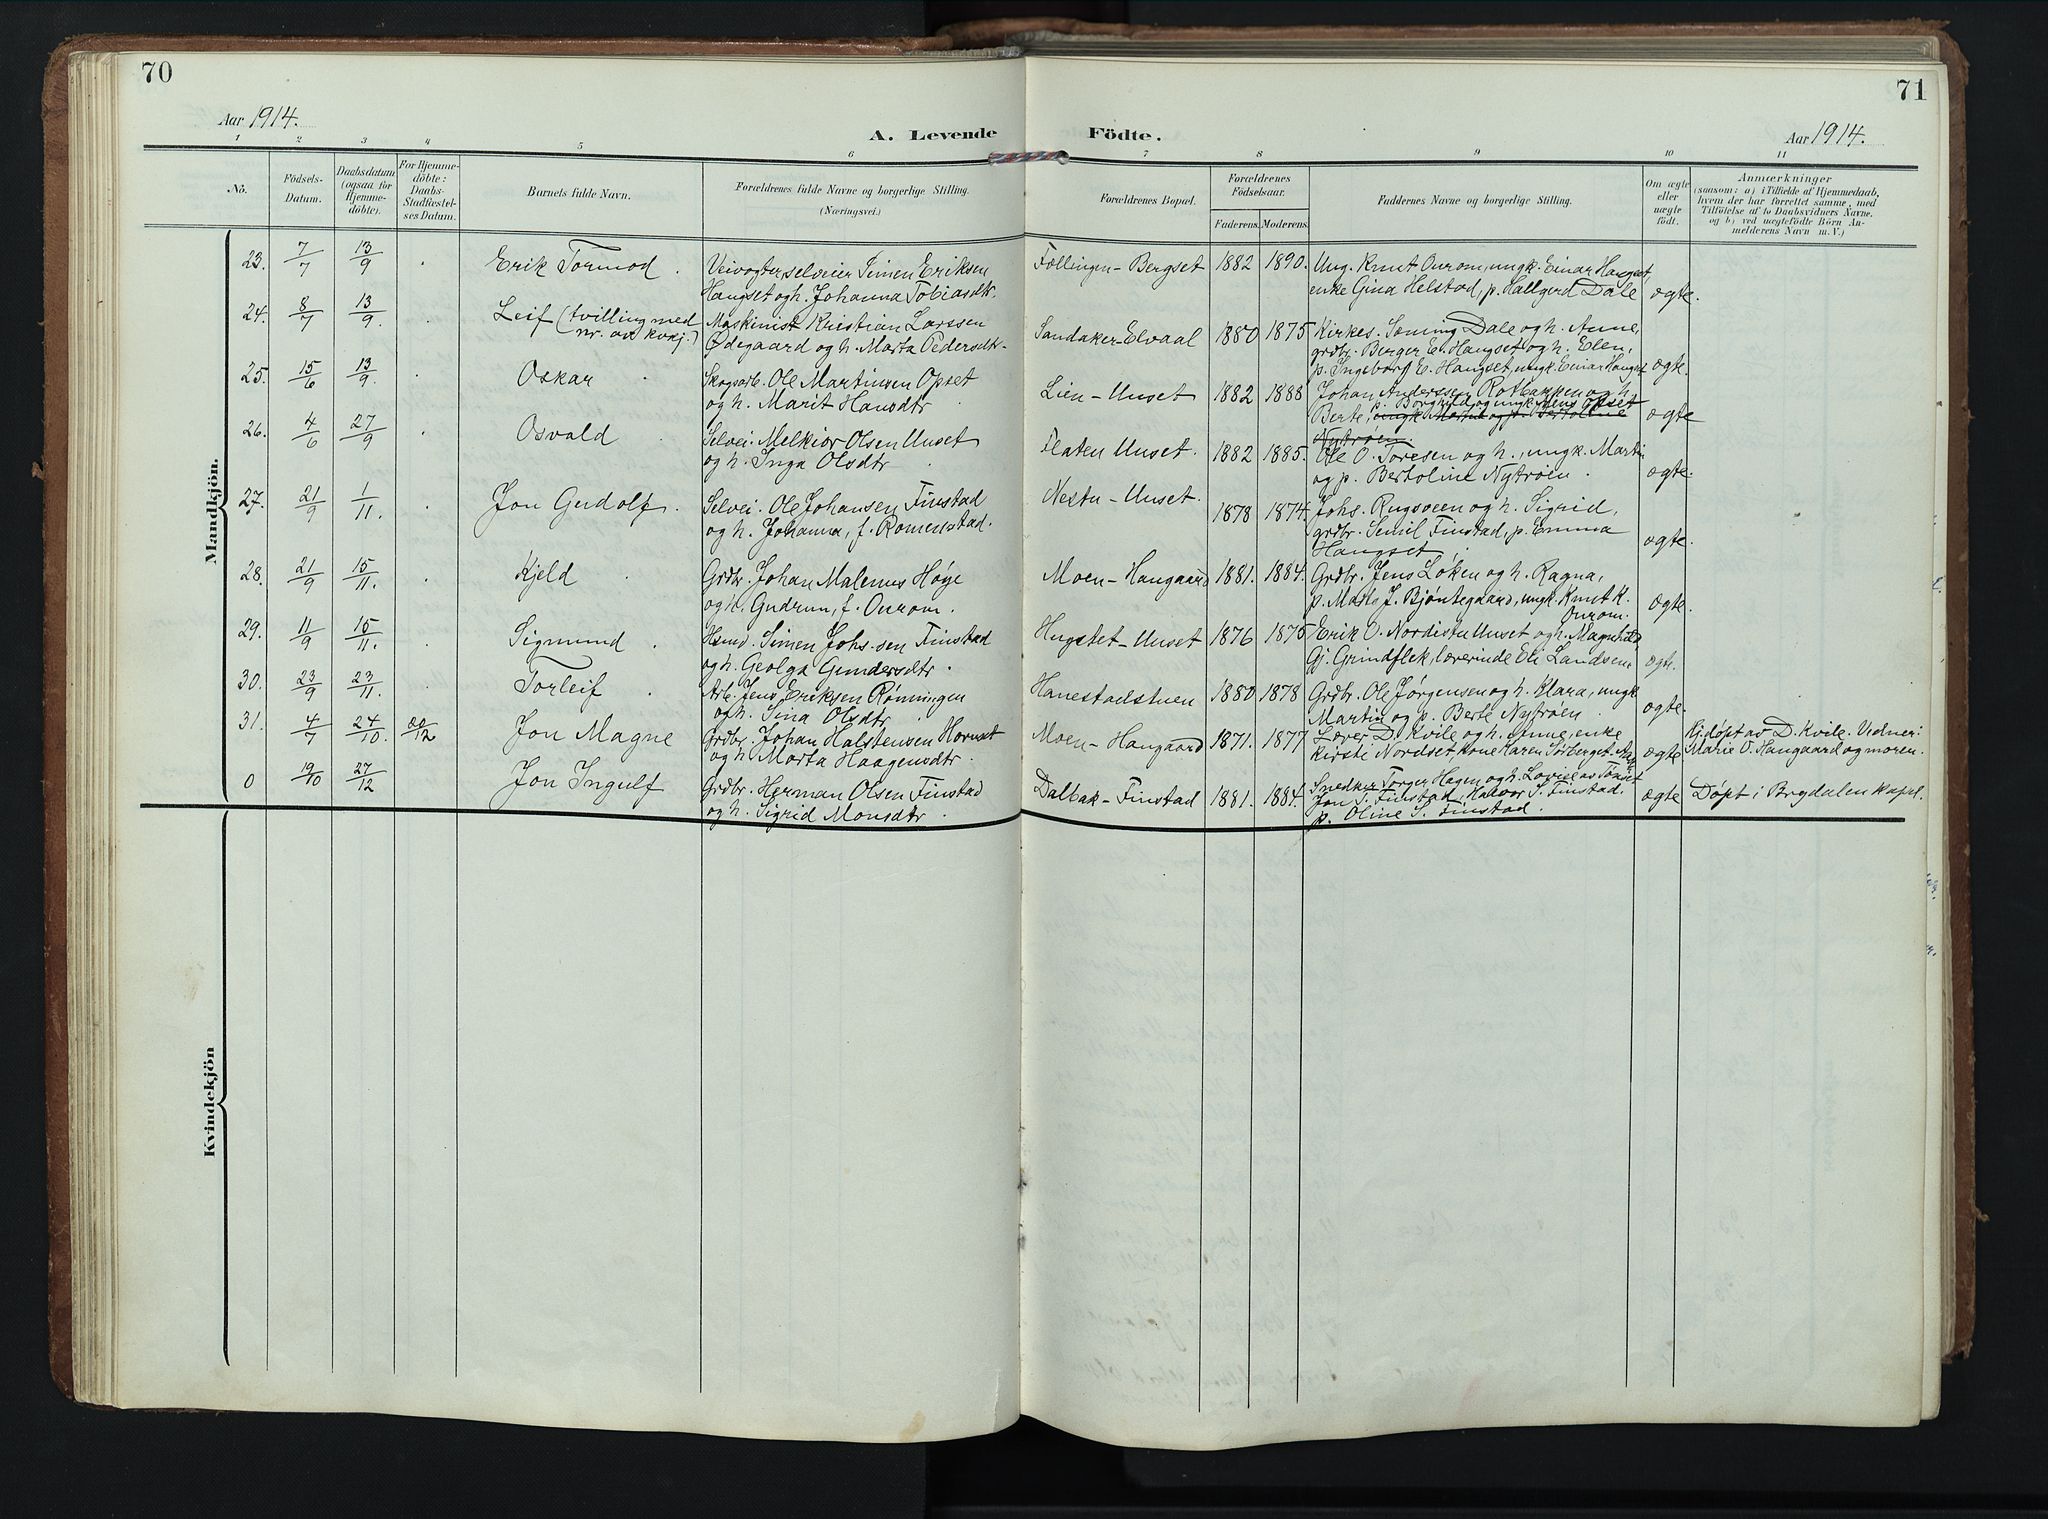 70
Aar 1914.
A. Levende
Födte.
71
Aar 1914.
1 2 3 4 5 6 7 8 9 10 11
No.
Födsels-
Datum.
Daabsdatum
(ogsaa for
Hjemme-
döbte).
For Hjemme-
döbte:
Daabs-
Stadfæstel-
ses Datum.
Barnets fulde Navn.
Forældrenes fulde Navne og borgerlige Stilling.
(Næringsvei.)
Forældrenes Bopæl.
Forældrenes
Födselsaar.
Faderens. Moderens.
Faddernes Navne og borgerlige Stilling.
Om ægte
eller
uægte
födt.
Anmærkninger
(saasom: a) i Tilfælde af Hjemmedaab,
hvem der har forrettet samme, med
Tilföielse af to Daabsvidners Navne,
og b) ved uægtefödte Börn An-
melderens Navn m. V.)
Mandkjön.
23. 7/7 13/9 Erik Tormod. Veivogter, selveier Simen Eriksen
Hangset og h. Johanna Tobiasdtr.
Føllingen-Bergset 1882 1890. Ung. Knut Ourom, ungk. Einar Hangset,
enke Gina Helstad, p. Hallgerd Dale ægte.
24. 8/7 13/9. Leif (tvilling med
nr. av kvkj.)
Maskinist Kristian Larssen
Ødegaard og h. Marta Pedersdtr.
Sandaker-Elvaal 1880 1875 Kirkes. Dale og h. Anne,
grdbr. Berger E. Hangset og h. Elen,
p. Ingeborg E. Hangset, ungk. Einar Hangset ægte.
25. 15/6 13/9. Oskar. Skogsarb. Ole Martinsen Opset
og h. Marit Hansdtr.
Lien-Unset 1882 1888 Johan Anderssen og h.
Berte, p. Borghild og ungk. Jens Opset
ungk. Martin og p. Bertoline
Nytrøen. ægte
26. 4/6 27/9 Osvald. Selvei. Melkior Olsen Unset
og h. Inga Olsdtr.
Flaten Unset. 1882 1885. Ole O. Toresen og h., ungk. Martin
og p. Bertoline Nytrøen. ægte.
27. 21/9 1/11. Jon Gudolf. Selvei. Ole Johansen Finstad
og h. Johanna, f. Romenstad.
Nestu-Unset. 1878 1874. Johs. Rugsveen og h. Sigrid,
grdbr. Finstad, p. Emma
Hangset. ægte.
28. 21/9 15/11. Kjeld. Grdbr. Johan Malenus Høye
og h. Gudrun, f. Ourom.
Moen-Hangaard 1881. 1884. Grdbr. Jens Løken og h. Ragna,
p. J. Bjøntegaard, ungk. Knut K.
Ourom. ægte.
29. 11/9 15/11. Sigmund. Hsmd. Simen Johs.sen Finstad
og h. Gundersdtr.
Hugstet-Unset 1876 1875 Erik O. Nordistu Unset og h. Magnhild,
Gj. Grindflek, lærerinde Eli Landsem. ægte.
30. 23/9 23/11. Torleif. Arb. Jens Eriksen Rønningen
og h. Sina Olsdtr.
Hanestadstuen 1880 1878 Grdbr. Ole Jørgensen og h. Klara, ungk.
Martin og p. Berte Nytrøen. ægte.
31. 4/7 24/10. 20/12 Jon Magne Grdbr. Johan Halstensen Hornset
og h. Marta Haagensdtr.
Moen-Hangaard 1871. 1877 Lærer D. Kvile og h. Anne, enke
Kirsti Nordset, kone Karen Sørberget ægte Hj.døpt av D. Kvile. Vidner:
Marie O. Hangaard og moren.
0 19/10 27/12 Jon Ingulf Grdbr. Herman Olsen Finstad
og h. Sigrid Monsdtr.
Dalbak-Finstad 1881. 1884. Snedker Torger Hagen og h. Lovise av Tønset
Jon S. Finstad, Halvor S. Finstad.
p. Oline S. Finstad. ægte Døpt i Brydalen kapel.
Kvindekjön